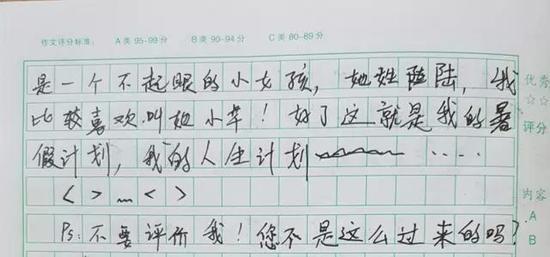 作文评分标准： A类 95-99分 B类 90-94分 C类 80-89分
是一个不起眼的小女孩，她姓陆，我
比较喜欢叫她小草！好了这就是我的暑
假计划，我的人生计划 ....
< > … < >
Ps：不要评价我！您不是这么过来的吗？
优秀
☆☆
评分
内容
A
B